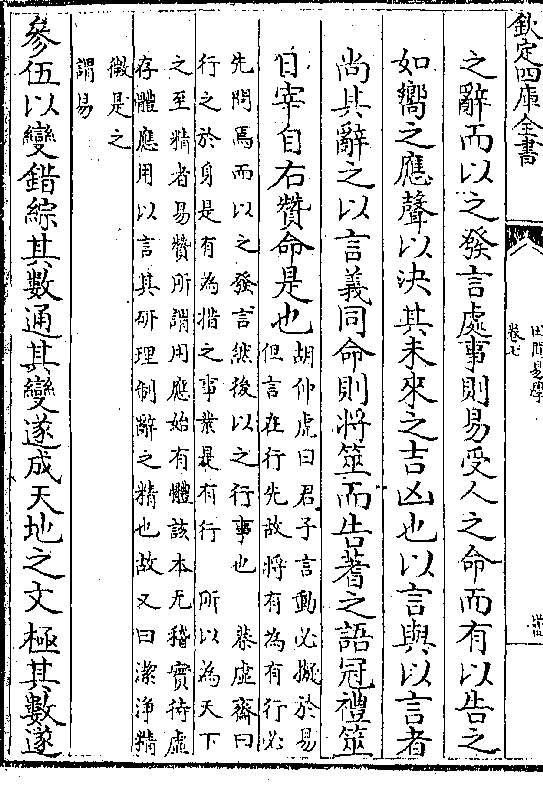 欽定四庫全書
田間易學
卷七
之辭而以之發言處事則易受人之命而有以告之
如嚮之應聲以決其未來之吉凶也以言與以言者
尚其辭之以言義同命則將筮而告蓍之語冠禮筮
日宰自右贊命是也
胡仲虎曰君子言動必擬於易
但言在行先故將有為有行必
先問焉而以之發言然後以之行事也 蔡虛齋曰
行之於身是有為措之事業是有行 所以為天下
之至精者易贊所謂用應始有體該本无稽實待虛
存體應用以言其研理制辭之精也故又曰潔淨精
微是之
謂易
參伍以變錯綜其數通其變遂成天地之文極其數遂